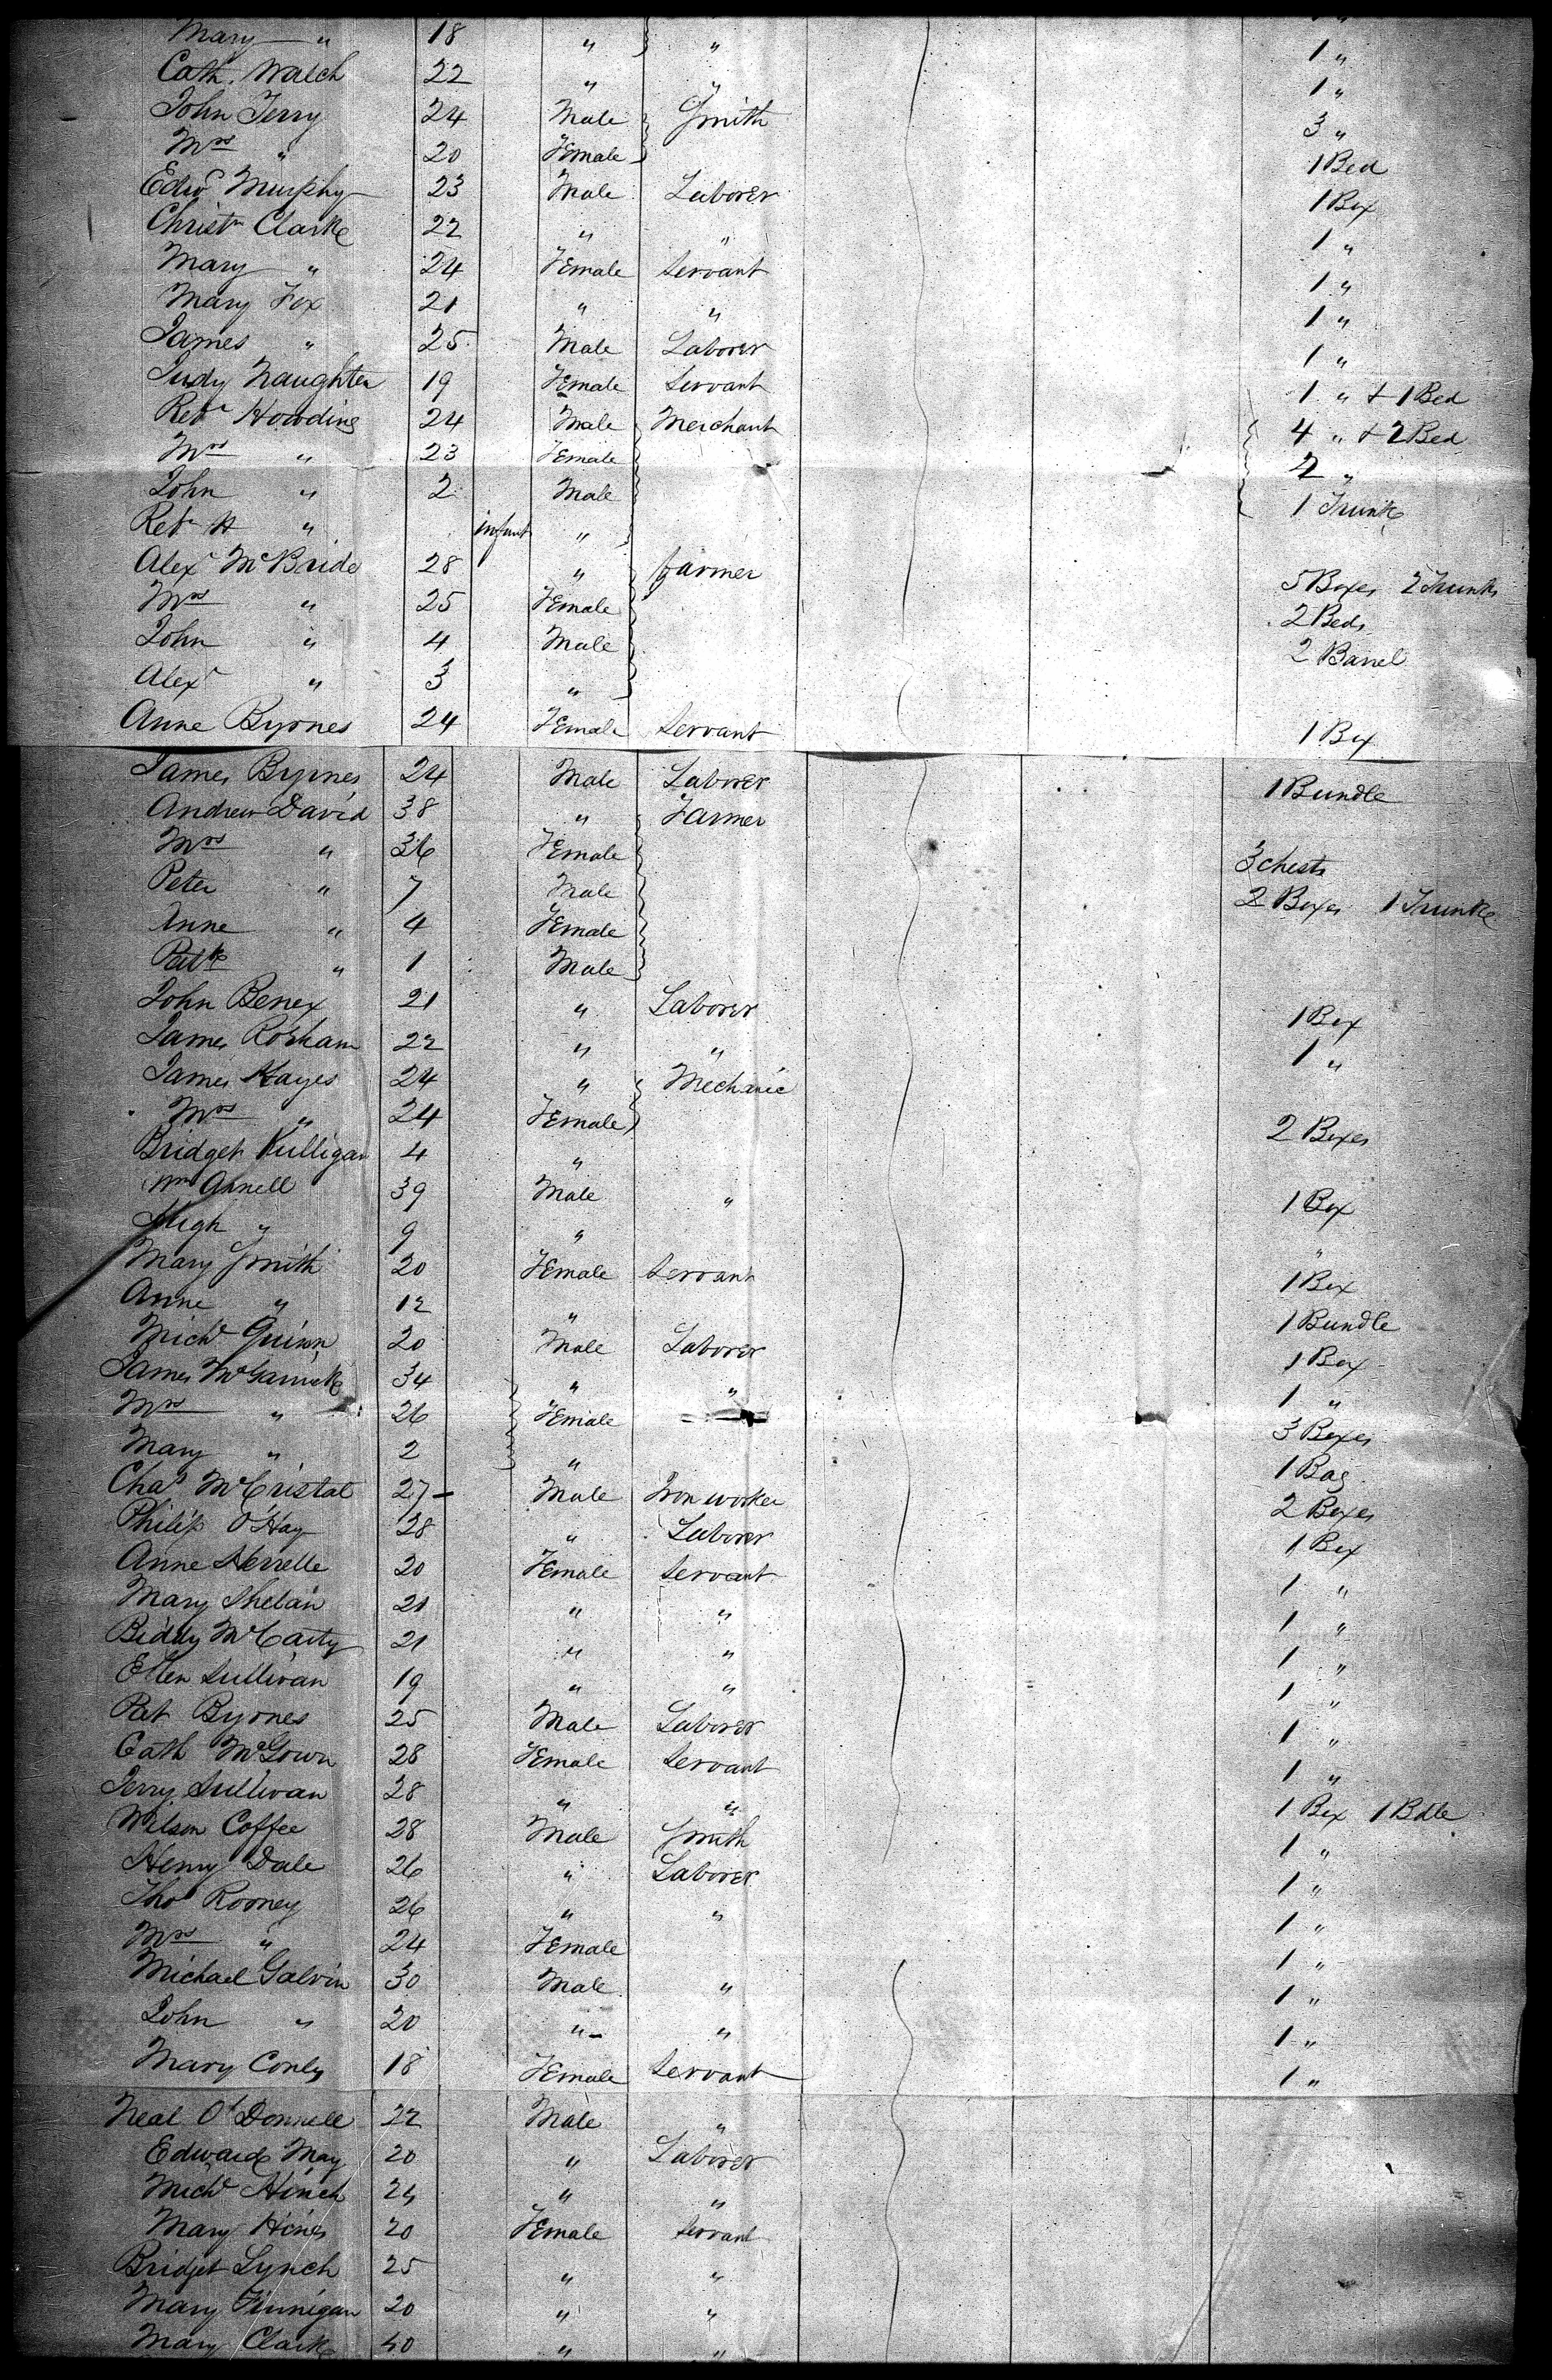 Mary " 18 " " 1 "
Cath. Walch 22 " " 1 "
John Terry 24 Male Smith 3 "
Mrs " 20 Female 1 Bed
Edwd Murphy 23 Male Laborer 1 Box
Christn Clarke 22 " " 1 "
Mary " 24 Female Servant 1 "
Mary Fox 21 " " 1 "
James " 25 Male Laborer 1 "
Judy Naughten 19 Female Servant 1 " + 1 Bed
Robt Howding 24 Male Merchant 4 " + 2 Bed
Mrs " 23 Female 2 "
John " 2 Male 1 Trunk
Robt H " infant "
Alexr McBride 28 " farmer 5 Boxes 2 Trunks
Mrs " 25 Female 2 Beds
John " 4 Male 2 Barrel
Alexr " 3 "
Anne Byrnes 24 Female Servant 1 Box
James Byrnes 24 Male Laborer 1 Bundle
Andrew David 38 " Farmer
Mrs " 36 Female 3 chests
Peter " 7 Male 2 Boxes 1 Trunk
Anne " 4 Female
Patk " 1 Male
John Benex 21 " Laborer 1 Box
James Rorham 22 " " 1 "
James Hayes 24 " Mechanic
Mrs " 24 Female 2 Boxes
Bridget Kulligan 4 "
Wm Annell 39 Male " 1 Box
Hugh " 9 " "
Mary Smith 20 Female Servant 1 Box
Anne " 12 " 1 Bundle
Michl Quinn 20 Male Laborer 1 Box
James McGarrick 34 " " 1 "
Mrs " 26 Female 3 Boxes
Mary " 2 " 1 Bag
Chas McCristal 27 Male Iron worker 2 Boxes
Philip O'Hay 28 " Laborer 1 Box
Anne Herrelle 20 Female Servant 1 "
Mary Shelan 21 " " 1 "
Biddy McCarty 21 " " 1 "
Ellen Sullivan 19 " " 1 "
Pat Byrnes 25 Male Laborer 1 "
Cath McGown 28 Female Servant 1 "
Jerry Sullivan 28 " " 1 Box 1 Bdle
Wilson Coffee 28 Male Smith 1 "
Henry Dale 26 " Laborer 1 "
Thos Rooney 26 " " 1 "
Mrs " 24 Female 1 "
Michael Galvin 30 Male " 1 "
John " 20 " " 1 "
Mary Conly 18 Female Servant 1 "
Neal O'Donnell 22 Male "
Edward May 20 " Laborer
Michl Hinch 24 " "
Mary Hines 20 Female Servant
Bridget Lynch 25 " "
Mary Finnigan 20 " "
Mary Clark " "